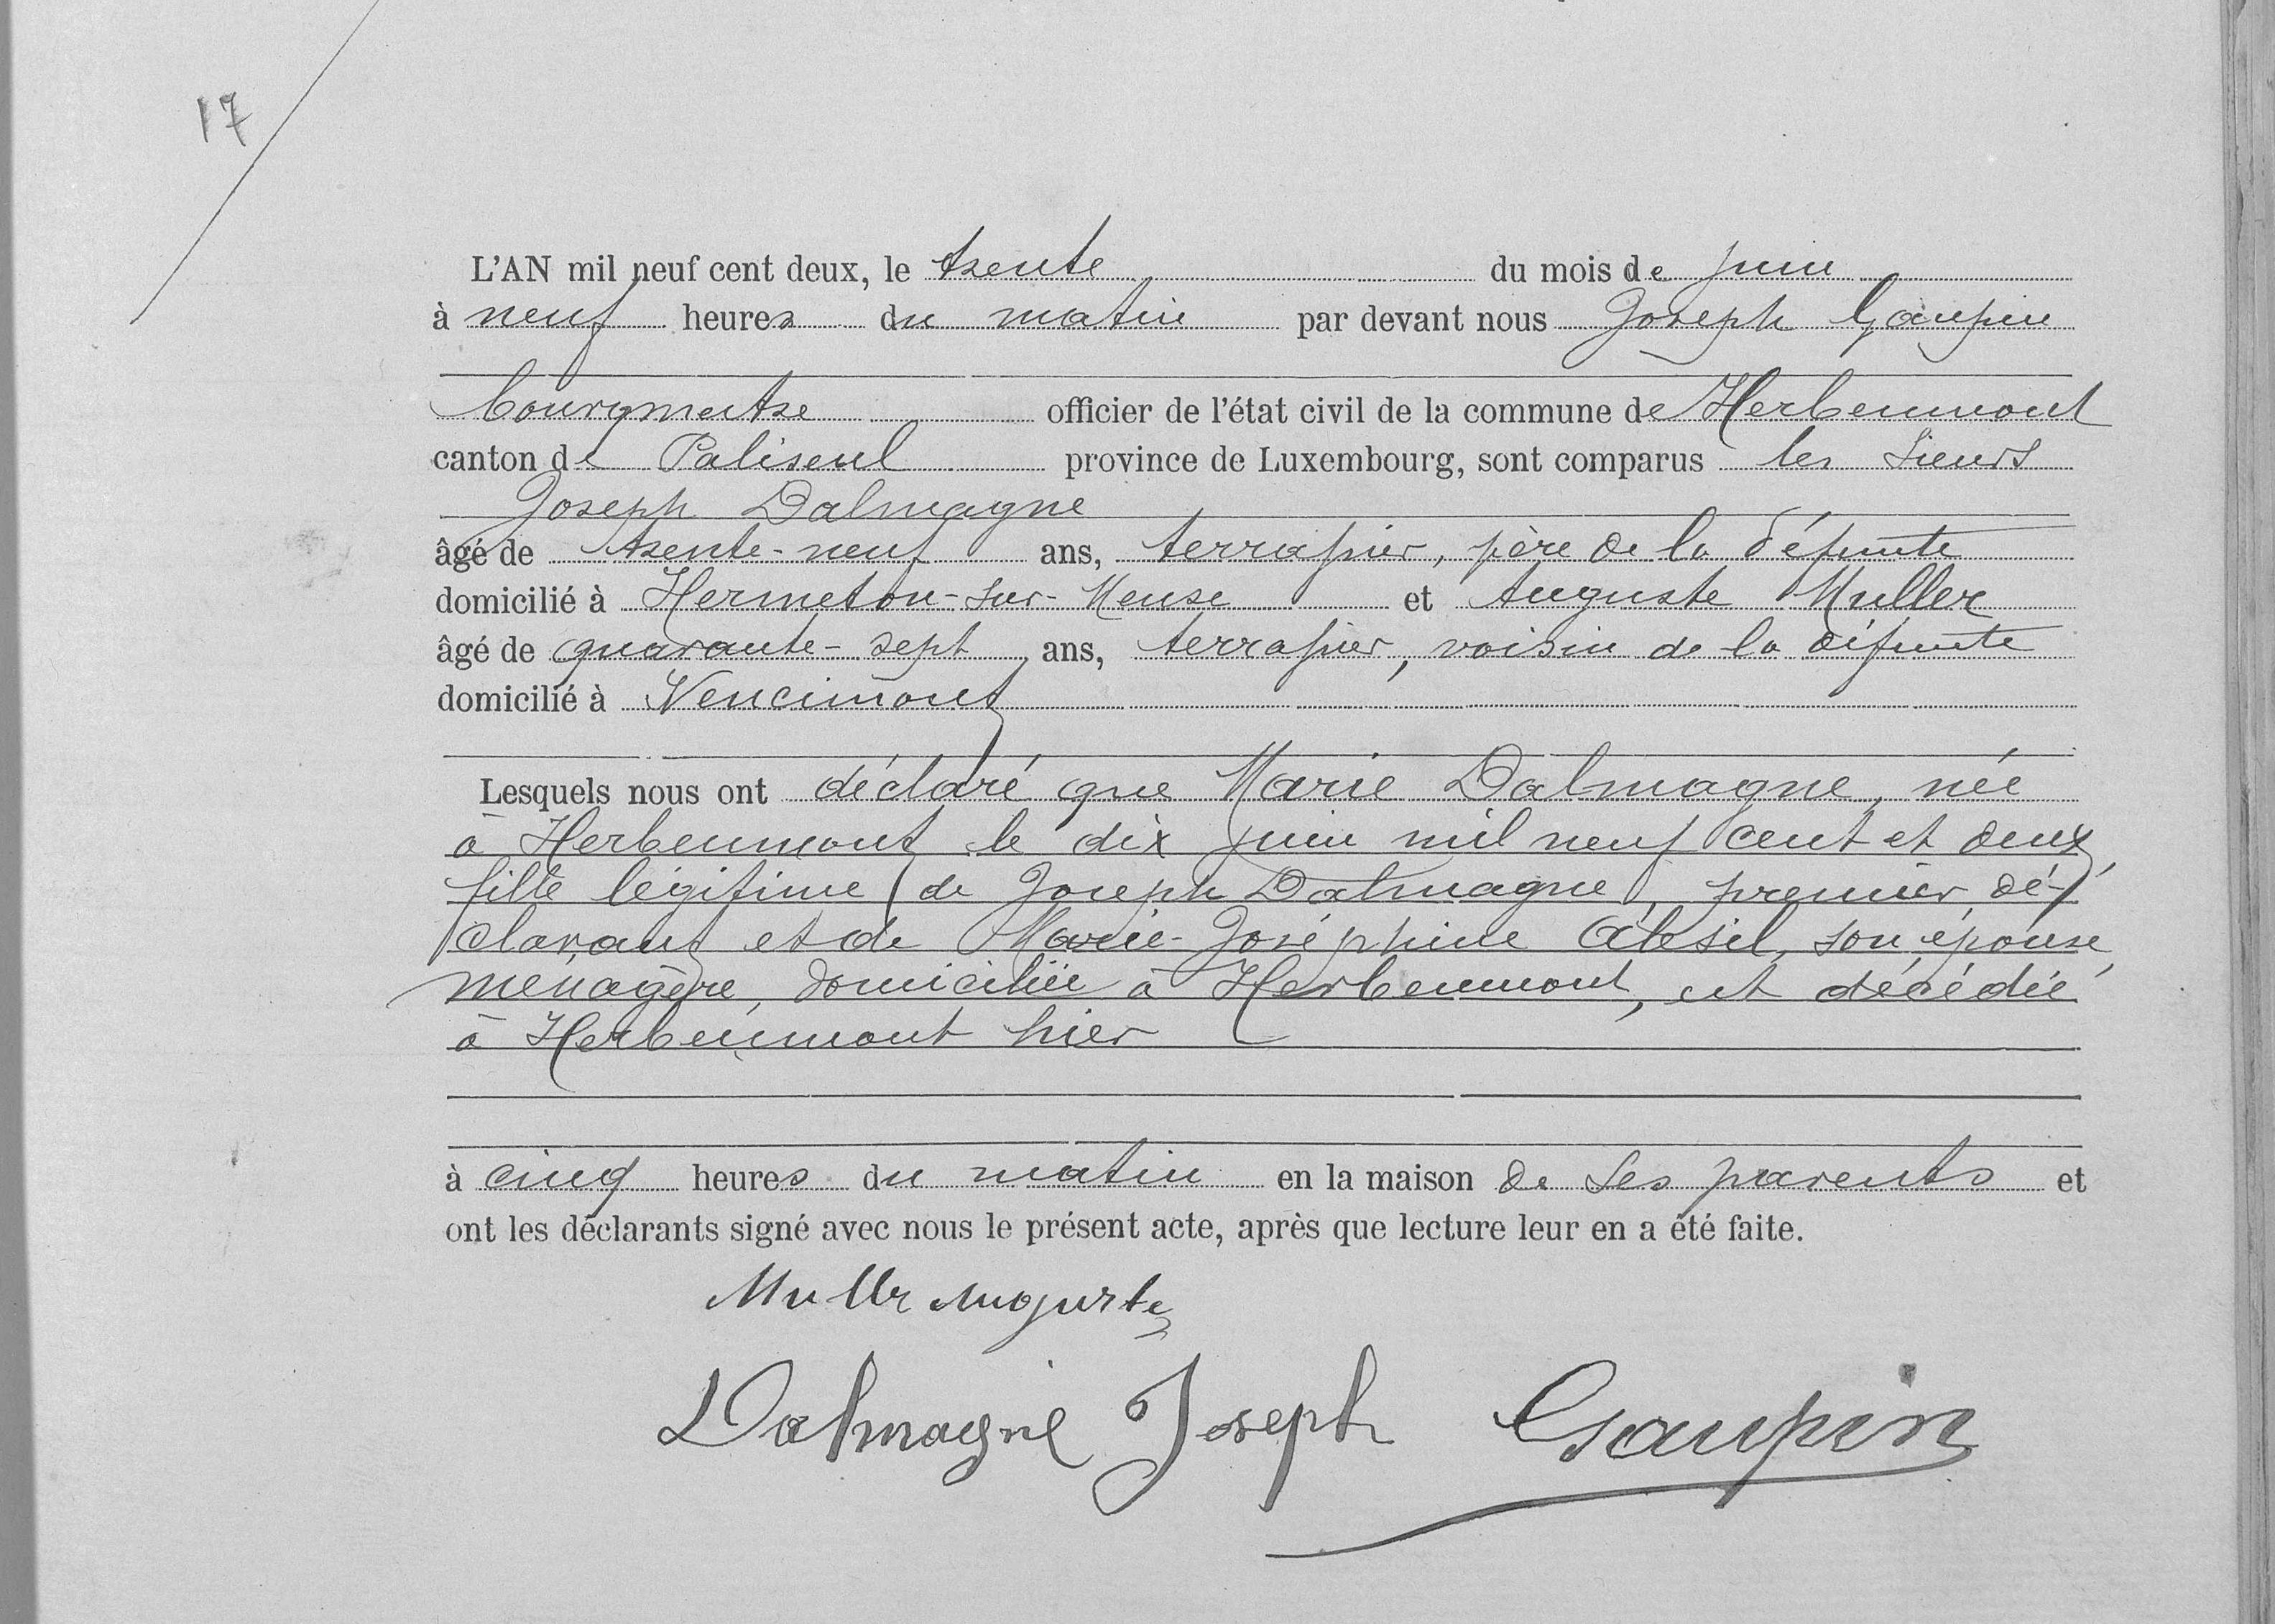 17
L'AN mil neuf cent deux, le trente du mois de juin
à neuf heures du matin par devant nous Joseph Gaupin
bourgmestre officier de l'état civil de la commune de Herbeumont
canton de Paliseul province de Luxembourg, sont comparus les sieurs
Joseph Dalmagne
âgé de trente-neuf ans, terrassier, père de la défunte
domicilié à Hermeton-sur-Meuse et Auguste Muller
âgé de quarante-sept ans, terrassier, voisin de la défunte
domicilié à Vencimont
Lesquels nous ont déclaré que Marie Dalmagne, née
à Herbeumont le dix juin mil neuf cent et deux,
fille légitime de Joseph Dalmagne, premier dé-
clarant et de Marie-Joséphine son épouse,
ménagère, domiciliée à Herbeumont, est décédée
à Herbeumont hier
à cinq heures du matin en la maison de ses parents et
ont les déclarants signé avec nous le présent acte, après que lecture leur en a été faite.
Mullr Auguste
Dalmagne Joseph Gaupin